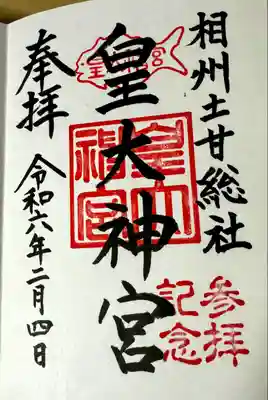 相州土甘総社
皇大神宮
奉拝
令和六年二月四日
皇大神宮
参拝
記念